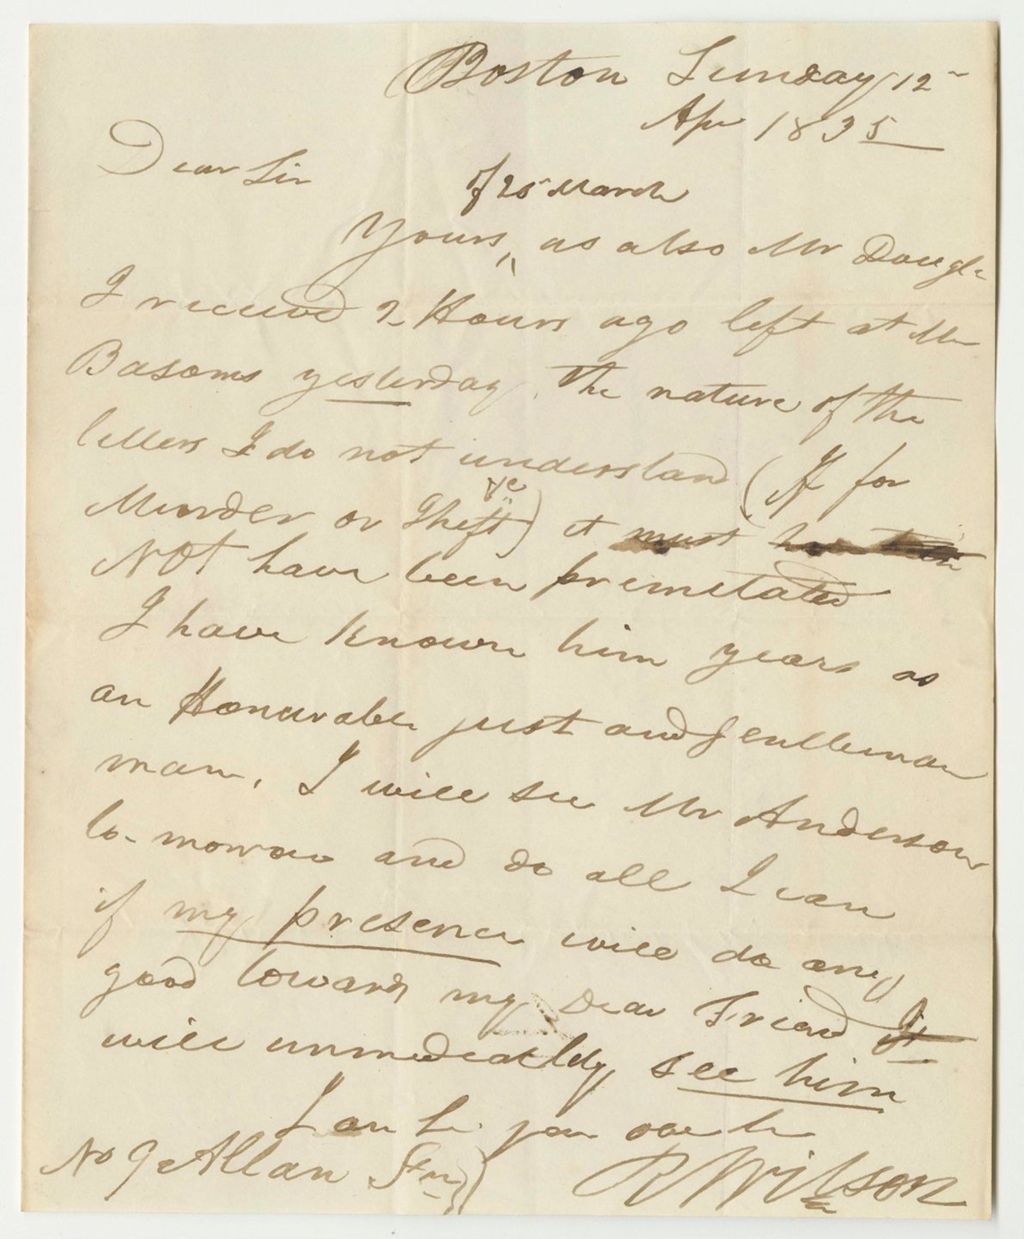 Boston Sunday 12
Apr 1835
Dear Sir
of 25 March
Yours, as also Mr Dougl
I received 2 Hours ago left at Mr
Basoms yesterday. The nature of the
letters I do not understand (If for
Murder or Theft) it must
NOT have been premetated
I have known him years as
an Honurable just and Gentleman
man, I will see Mr Anderson
to-morow and do all I can
if my presence will do any
good toward my Dear Friend I
will immedeatldy see him
I am
No 9 Allan
R Wilson